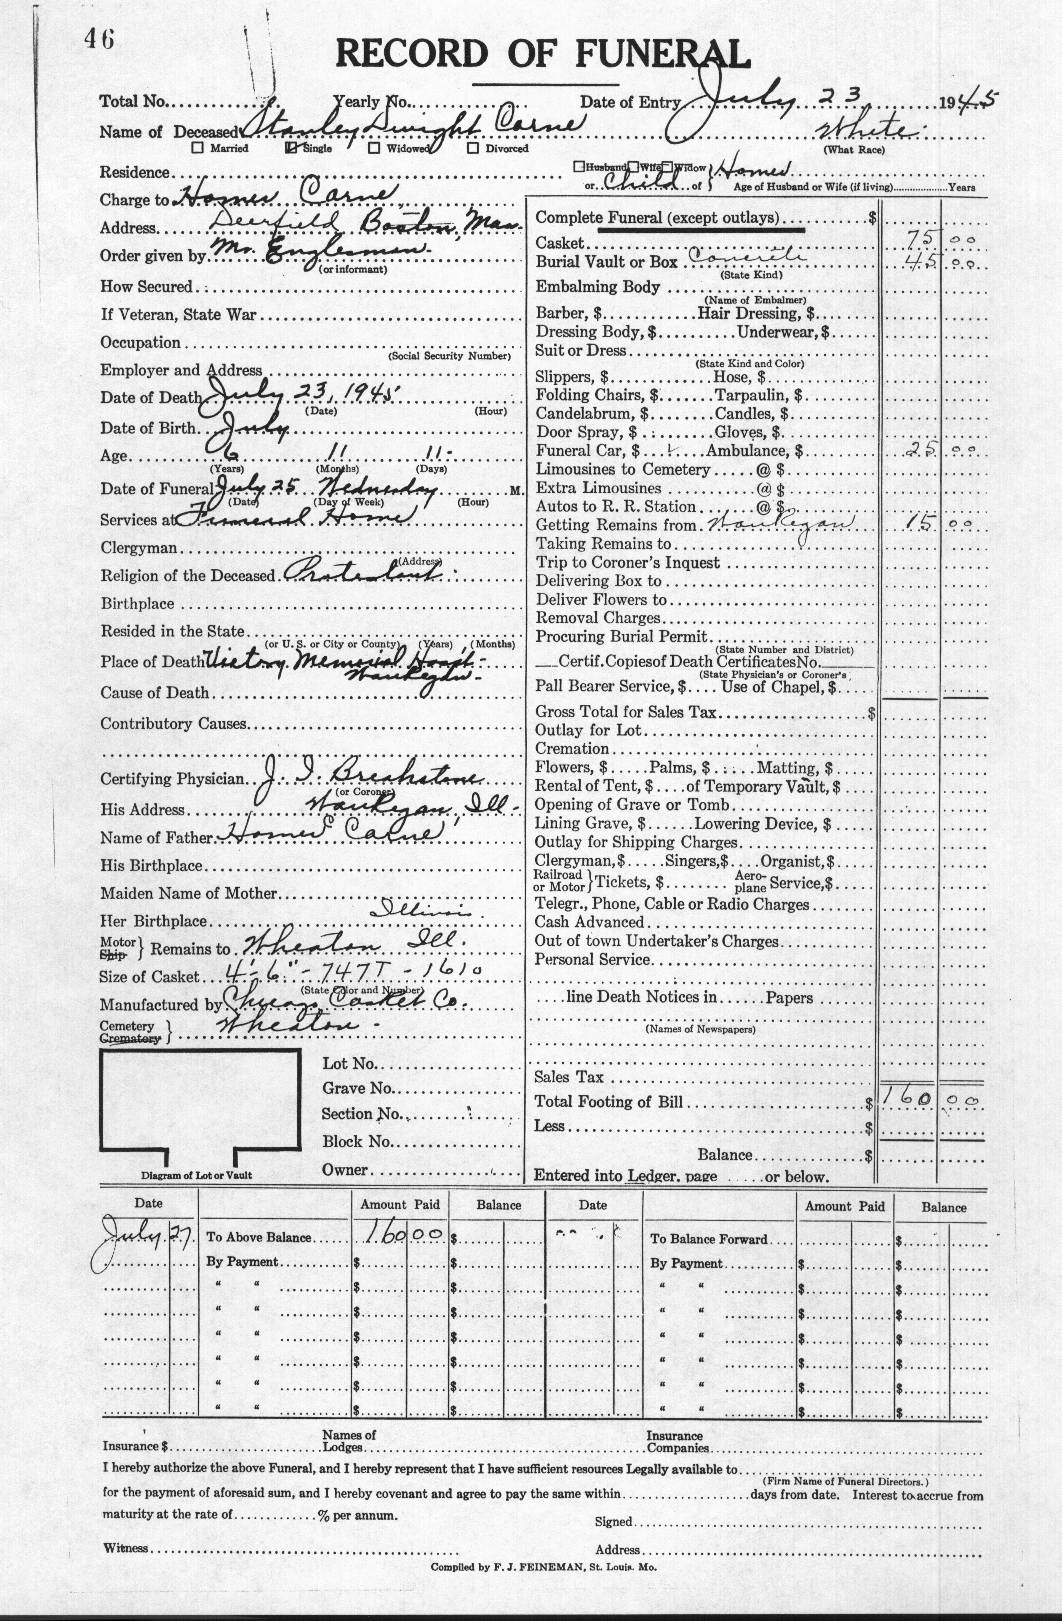 46
RECORD OF FUNERAL
Total No. Yearly No. Date of Entry July 23, 1945
Name of Deceased Stanley Dwight Carne White
☐ Married ☑ Single ☐ Widowed ☐ Divorced (What Race)
Residence
☐ Husband ☐ Wife ☐ Widow or Child of } Homer Age of Husband or Wife (if living) Years
Charge to Homer Carne
Address Deerfield Boston, Mass.
Order given by Mr. Englesman
(or informant)
How Secured
If Veteran, State War
Occupation
(Social Security Number)
Employer and Address
Date of Death July 23, 1945
(Date) (Hour)
Date of Birth July
Age 6 11 11
(Years) (Months) (Days)
Date of Funeral July 25 Wednesday M.
(Date) (Day of Week) (Hour)
Services at Funeral Home
Clergyman
(Address)
Religion of the Deceased Protestant
Birthplace
Resided in the State
(or U. S. or City or County) (Years) (Months)
Place of Death Victory Memorial Hospt -
Waukegan -
Cause of Death
Contributory Causes
Certifying Physician J. I. Breakstone
(or Coroner)
His Address Waukegan, Ill -
Name of Father Homer Carne
His Birthplace
Maiden Name of Mother
Her Birthplace Illinois
Motor Ship } Remains to Wheaton Ill.
Size of Casket 4'-6" - 747T - 1610
(State Color and Number)
Manufactured by Chicago Casket Co.
Cemetery Crematory } Wheaton -
Lot No.
Grave No.
Section No.
Block No.
Owner
Diagram of Lot or Vault
Complete Funeral (except outlays) $
Casket 75 00
Burial Vault or Box Concrete 45 00
(State Kind)
Embalming Body
(Name of Embalmer)
Barber, $ Hair Dressing, $
Dressing Body, $ Underwear, $
Suit or Dress
(State Kind and Color)
Slippers, $ Hose, $
Folding Chairs, $ Tarpaulin, $
Candelabrum, $ Candles, $
Door Spray, $ Gloves, $
Funeral Car, $ Ambulance, $ 25 00
Limousines to Cemetery @ $
Extra Limousines @ $
Autos to R. R. Station @ $
Getting Remains from Waukegan 15 00
Taking Remains to
Trip to Coroner's Inquest
Delivering Box to
Deliver Flowers to
Removal Charges
Procuring Burial Permit
(State Number and District)
Certif. Copies of Death Certificates No.
(State Physician's or Coroner's)
Pall Bearer Service, $ Use of Chapel, $
Gross Total for Sales Tax $
Outlay for Lot
Cremation
Flowers, $ Palms, $ Matting, $
Rental of Tent, $ of Temporary Vault, $
Opening of Grave or Tomb
Lining Grave, $ Lowering Device, $
Outlay for Shipping Charges
Clergyman, $ Singers, $ Organist, $
Railroad or Motor } Tickets, $ Aero-plane Service, $
Telegr., Phone, Cable or Radio Charges
Cash Advanced
Out of town Undertaker's Charges
Personal Service
line Death Notices in Papers
(Names of Newspapers)
Sales Tax
Total Footing of Bill $ 160 00
Less $
Balance $
Entered into Ledger, page or below.
Date Amount Paid Balance Date Amount Paid Balance
July 27 To Above Balance 160 00 $ To Balance Forward $
By Payment $ $ By Payment $ $
" " $ $ " " $ $
" " $ $ " " $ $
" " $ $ " " $ $
" " $ $ " " $ $
" " $ $ " " $ $
" " $ $ " " $ $
Insurance $ Names of Lodges Insurance Companies
I hereby authorize the above Funeral, and I hereby represent that I have sufficient resources Legally available to
(Firm Name of Funeral Directors.)
for the payment of aforesaid sum, and I hereby covenant and agree to pay the same within days from date. Interest to accrue from
maturity at the rate of % per annum.
Signed
Witness Address
Compiled by F. J. FEINEMAN, St. Louis. Mo.